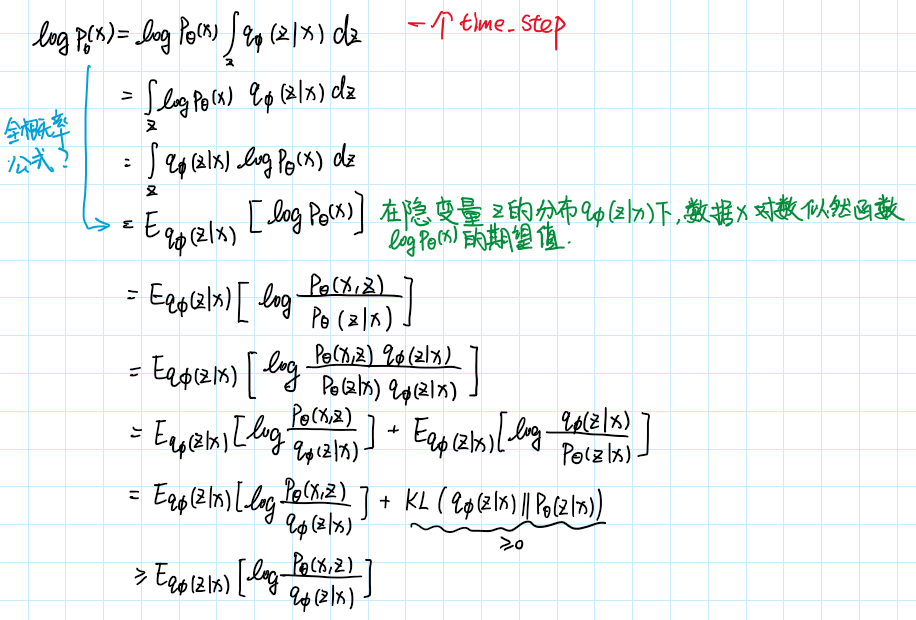 log Pθ(x) = log Pθ(x) ∫_z qφ(z|x) dz 一个 time_step
= ∫_z log Pθ(x) qφ(z|x) dz
全概率
公式?
= ∫_z qφ(z|x) log Pθ(x) dz
= E_qφ(z|x) [log Pθ(x)] 在隐变量 z 的分布 qφ(z|x)下,数据 x 对数似然函数
log Pθ(x) 的期望值.
= E_qφ(z|x) [log Pθ(x,z) / Pθ(z|x)]
= E_qφ(z|x) [log Pθ(x,z) qφ(z|x) / Pθ(z|x) qφ(z|x)]
= E_qφ(z|x) [log Pθ(x,z) / qφ(z|x)] + E_qφ(z|x) [log qφ(z|x) / Pθ(z|x)]
= E_qφ(z|x) [log Pθ(x,z) / qφ(z|x)] + KL (qφ(z|x) || Pθ(z|x))
≥0
≥ E_qφ(z|x) [log Pθ(x,z) / qφ(z|x)]